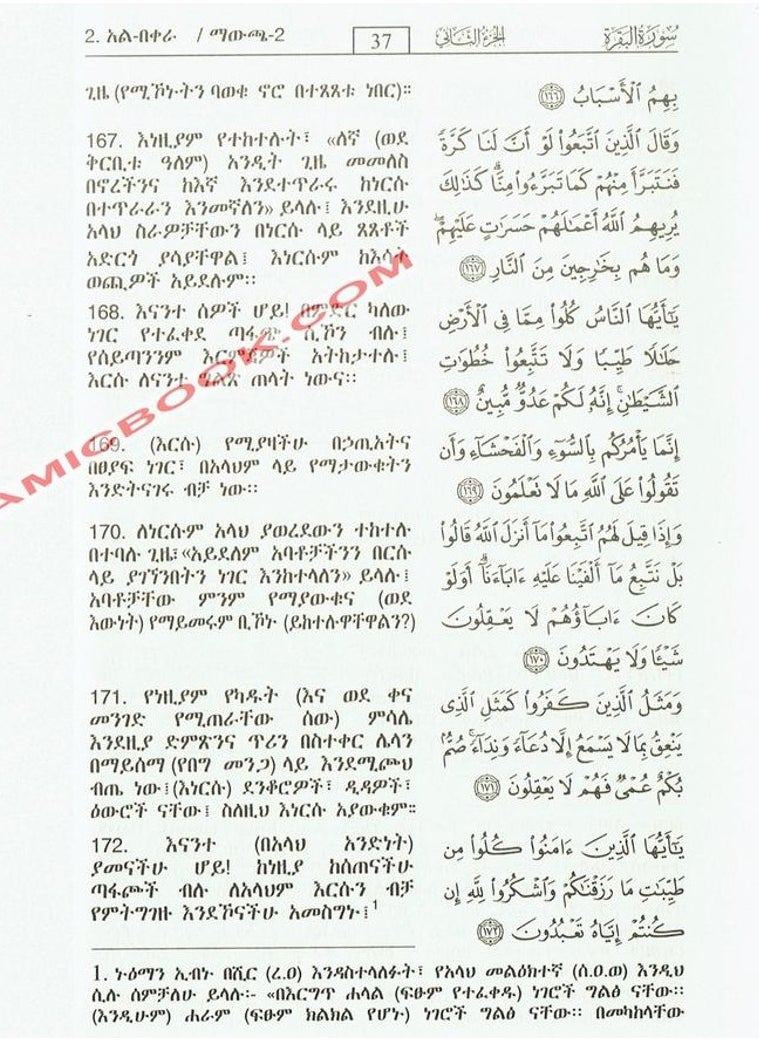 2. አል-በቀራ / ማውጫ-2
37
الجزء الثاني
سورة البقرة
ጊዜ (የሚኾኑትን ባወቁ ኖሮ በተጸጸቱ ነበር)።
167. እነዚያም የተከተሉት፣ «ለኛ (ወደ
ቅርቢቱ ዓለም) አንዲት ጊዜ መመለስ
በኖረችንና ከእኛ እንደተጥራሩ ከነርሱ
በተጥራራን እንመኛለን» ይላሉ፤ እንደዚሁ
አላህ ስራዎቻቸውን በነርሱ ላይ ጸጸቶች
አድርጎ ያሳያቸዋል፤ እነርሱም ከእሳት
ወጪዎች አይደሉም።
168. እናንተ ሰዎች ሆይ! በምድር ካለው
ነገር የተፈቀደ ጣፋጭ ሲኾን ብሉ፤
የሰይጣንንም እርምጃዎች አትከታተሉ፤
እርሱ ለናንተ ግልጽ ጠላት ነውና።
169. (እርሱ) የሚያዛችሁ በኃጢአትና
በፀያፍ ነገር፣ በአላህም ላይ የማታውቁትን
እንድትናገሩ ብቻ ነው።
170. ለነርሱም አላህ ያወረደውን ተከተሉ
በተባሉ ጊዜ፣ «አይደለም አባቶቻችንን በርሱ
ላይ ያገኘንበትን ነገር እንከተላለን» ይላሉ፤
አባቶቻቸው ምንም የማያውቁና (ወደ
እውነት) የማይመሩም ቢኾኑ (ይከተሉዋቸዋልን?)
171. የነዚያም የካዱት (እና ወደ ቀና
መንገድ የሚጠራቸው ሰው) ምሳሌ
እንደዚያ ድምጽንና ጥሪን በስተቀር ሌላን
በማይሰማ (የበግ መንጋ) ላይ እንደሚጮህ
ብጤ ነው፤ (እነርሱ) ደንቆሮዎች፣ ዲዳዎች፣
ዕውሮች ናቸው፤ ስለዚህ እነርሱ አያውቁም።
172. እናንተ (በአላህ አንድነት)
ያመናችሁ ሆይ! ከነዚያ ከሰጠናችሁ
ጣፋጮች ብሉ ለአላህም እርሱን ብቻ
የምትግገዙ እንደኾናችሁ አመስግኑ፤1
بِهِمُ ٱلْأَسْبَابُ ١٦٦
وَقَالَ ٱلَّذِينَ ٱتَّبَعُوا۟ لَوْ أَنَّ لَنَا كَرَّةً
فَنَتَبَرَّأَ مِنْهُمْ كَمَا تَبَرَّءُوا۟ مِنَّا ۗ كَذَٰلِكَ
يُرِيهِمُ ٱللَّهُ أَعْمَٰلَهُمْ حَسَرَٰتٍ عَلَيْهِمْ ۖ
وَمَا هُم بِخَٰرِجِينَ مِنَ ٱلنَّارِ ١٦٧
يَٰٓأَيُّهَا ٱلنَّاسُ كُلُوا۟ مِمَّا فِى ٱلْأَرْضِ
حَلَٰلًا طَيِّبًا وَلَا تَتَّبِعُوا۟ خُطُوَٰتِ
ٱلشَّيْطَٰنِ ۚ إِنَّهُۥ لَكُمْ عَدُوٌّ مُّبِينٌ ١٦٨
إِنَّمَا يَأْمُرُكُم بِٱلسُّوٓءِ وَٱلْفَحْشَآءِ وَأَن
تَقُولُوا۟ عَلَى ٱللَّهِ مَا لَا تَعْلَمُونَ ١٦٩
وَإِذَا قِيلَ لَهُمُ ٱتَّبِعُوا۟ مَآ أَنزَلَ ٱللَّهُ قَالُوا۟
بَلْ نَتَّبِعُ مَآ أَلْفَيْنَا عَلَيْهِ ءَابَآءَنَآ ۗ أَوَلَوْ
كَانَ ءَابَآؤُهُمْ لَا يَعْقِلُونَ
شَيْـًٔا وَلَا يَهْتَدُونَ ١٧٠
وَمَثَلُ ٱلَّذِينَ كَفَرُوا۟ كَمَثَلِ ٱلَّذِى
يَنْعِقُ بِمَا لَا يَسْمَعُ إِلَّا دُعَآءً وَنِدَآءً ۚ صُمٌّۢ
بُكْمٌ عُمْىٌ فَهُمْ لَا يَعْقِلُونَ ١٧١
يَٰٓأَيُّهَا ٱلَّذِينَ ءَامَنُوا۟ كُلُوا۟ مِن
طَيِّبَٰتِ مَا رَزَقْنَٰكُمْ وَٱشْكُرُوا۟ لِلَّهِ إِن
كُنتُمْ إِيَّاهُ تَعْبُدُونَ ١٧٢
1. ኑዕማን ኢብኑ በሺር (ረ.ዐ) እንዳስተላለፉት፣ የአላህ መልዕክተኛ (ሰ.ዐ.ወ) እንዲህ
ሲሉ ሰምቻለሁ ይላሉ፦ «በእርግጥ ሐላል (ፍፁም የተፈቀዱ) ነገሮች ግልፅ ናቸው።
(እንዲሁም) ሐራም (ፍፁም ክልክል የሆኑ) ነገሮች ግልፅ ናቸው። በመካከላቸው
AMICBOOK.COM